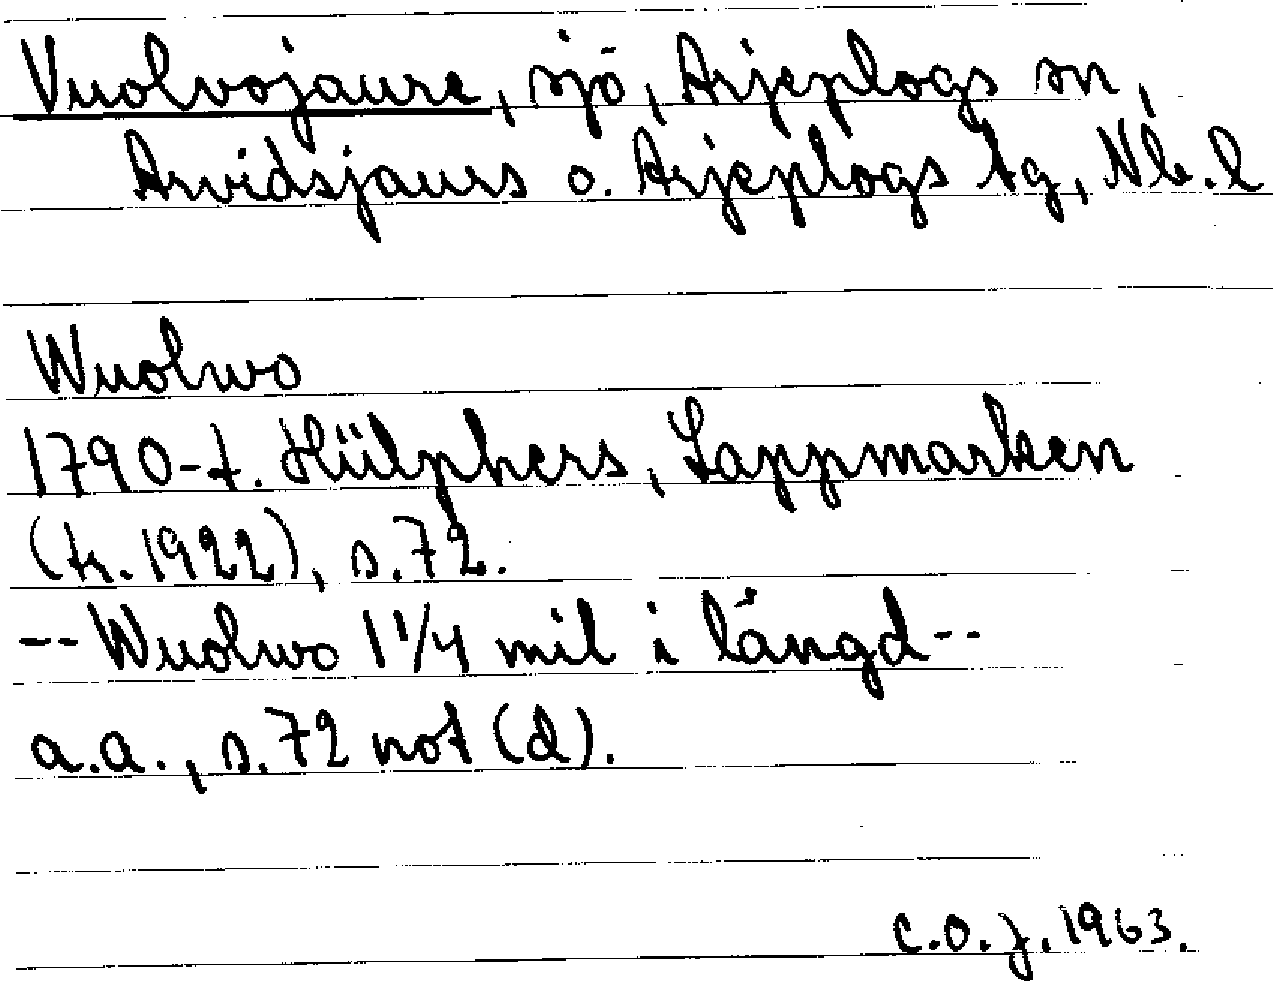 Vuolvojaure, sjö, Arjeplogs sn,
Arvidsjaurs o. Arjeplogs tg, Nb. l
Wuolwo
1790-t. Hülphers, Lappmarken
(tr. 1922), s. 72.
-- Wuolwo 1 1/4 mil i längd --
a.a., s. 72 not (d).
C.O.J. 1963.